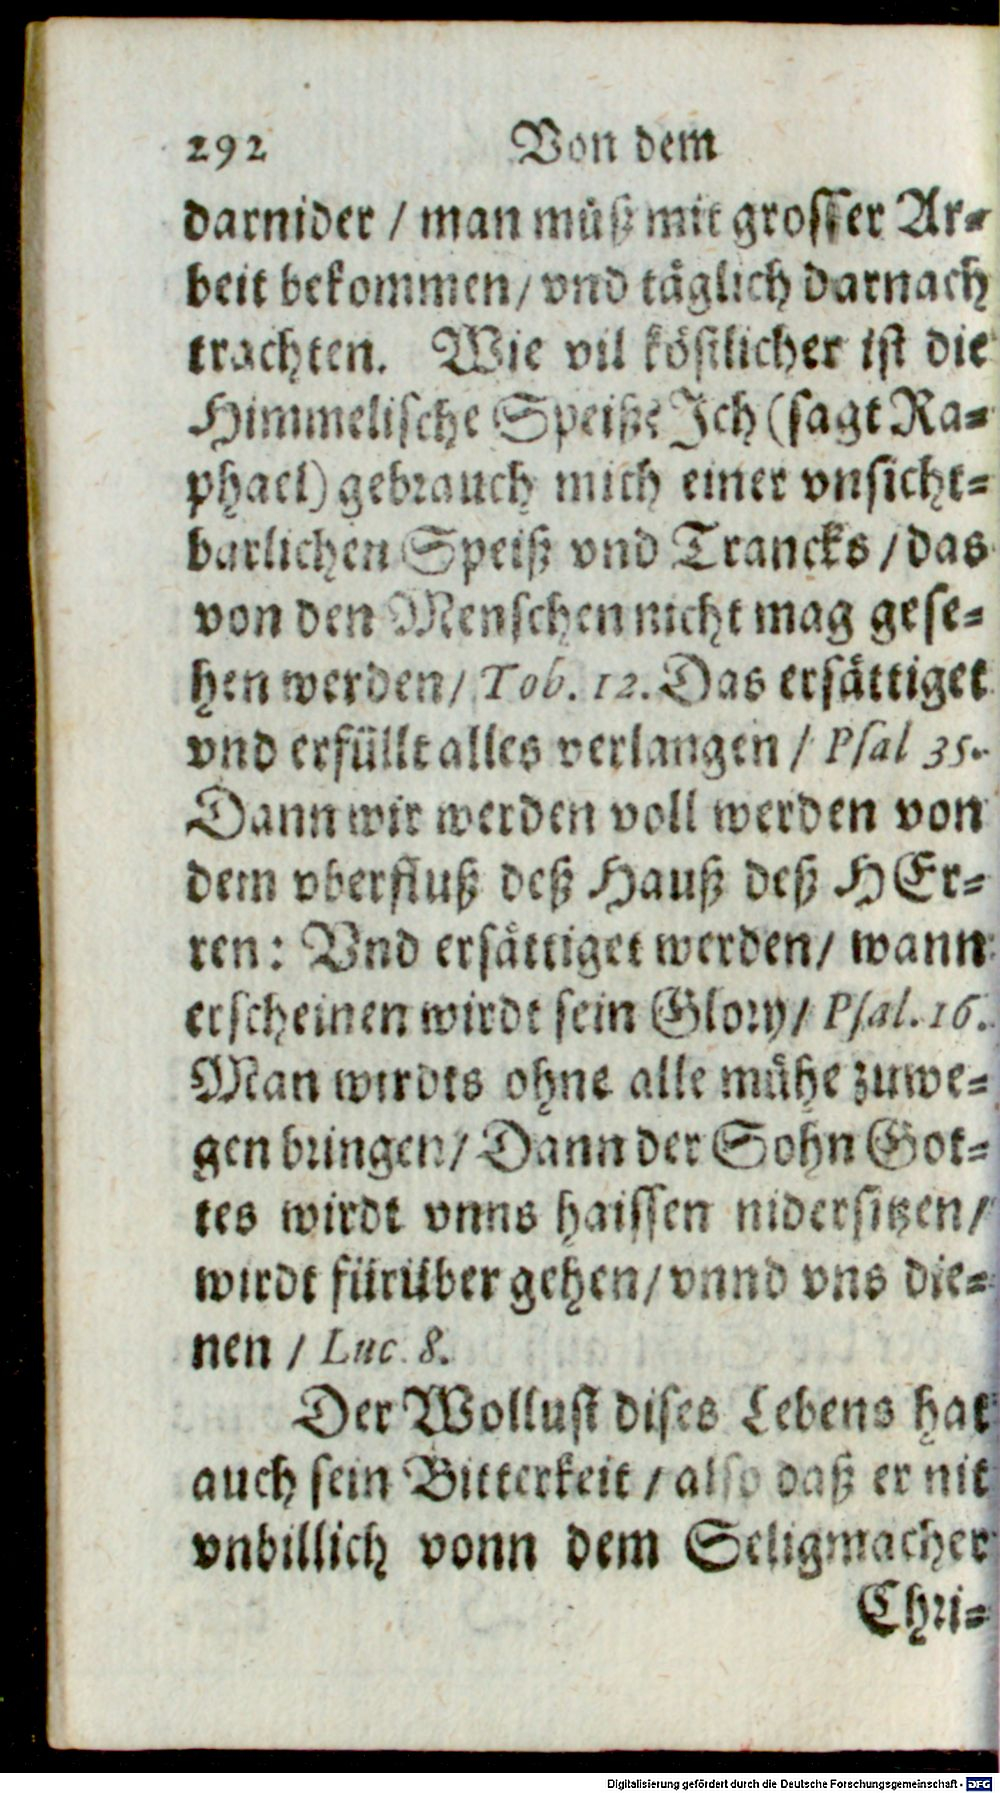 292 Von dem
darnider / man müß mit grosser Ar-
beit bekommen / vnd täglich darnach
trachten. Wie vil köstlicher ist die
Himmelische Speiß? Ich (sagt Ra-
phael) gebrauch mich einer vnsicht-
barlichen Speiß vnd Trancks / das
von den Menschen nicht mag gese-
hen werden / Tob. 12. Das ersättiget
vnd erfüllt alles verlangen / Psal 35.
Dann wir werden voll werden von
dem vberfluß deß Hauß deß HEr-
ren: Vnd ersättiget werden / wann
erscheinen wirdt sein Glory / Psal. 16.
Man wirdts ohne alle mühe zuwe-
gen bringen / Dann der Sohn Got-
tes wirdt vnns haissen nidersitzen /
wirdt fürüber gehen / vnnd vns die-
nen / Luc. 8.
Der Wollust dises Lebens hat
auch sein Bitterkeit / also daß er nit
vnbillich vonn dem Seligmacher
Chri-
Digitalisierung gefördert durch die Deutsche Forschungsgemeinschaft - DFG